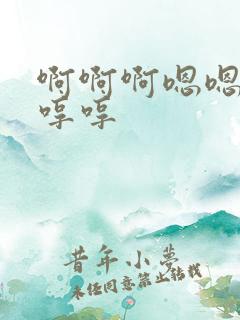 啊啊啊嗯嗯
哼哼
昔年小梦
未经同意禁止转载